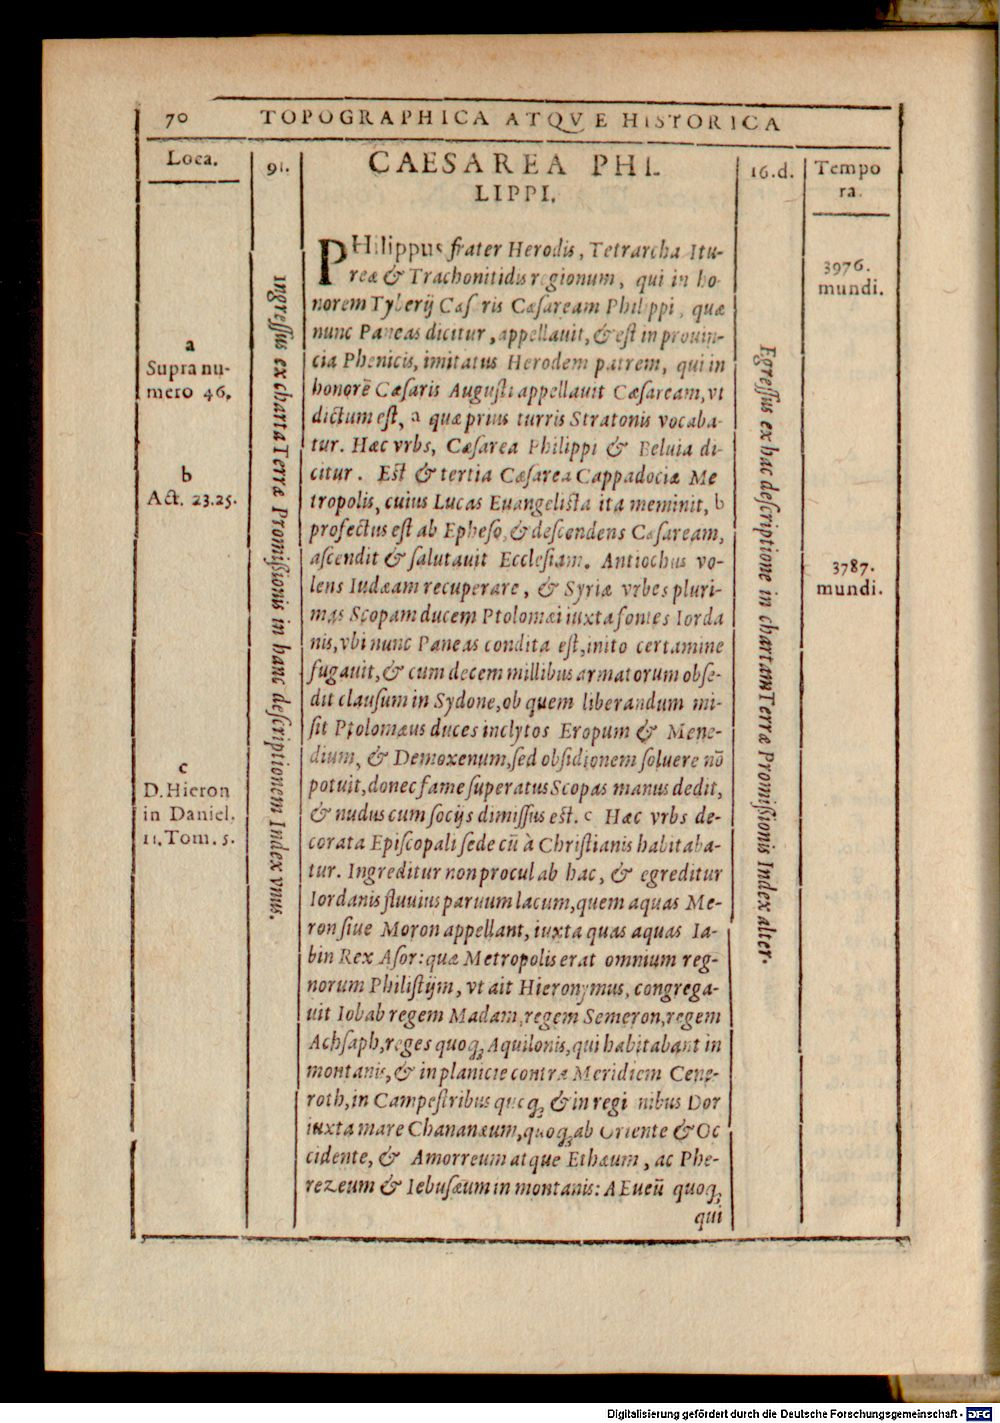 70 TOPOGRAPHICA ATQVE HISTORICA
Loca.
91.
CAESAREA PHI
LIPPI.
16.d.
Tempo
ra.
a
Supra nu-
mero 46.
b
Act. 23.25.
c
D. Hieron
in Daniel.
11. Tom. 5.
Ingressus ex charta Terræ Promissionis in hanc descriptionem Index vnus.
PHilippus frater Herodis, Tetrarcha Itu-
reæ & Trachonitidis regionum, qui in ho-
norem Tyberij Cæsaris Cæsaream Philippi, quæ
nunc Paneas dicitur, appellauit, & est in prouin-
cia Phenicis, imitatus Herodem patrem, qui in
honorẽ Cæsaris Augusti appellauit Cæsaream, vt
dictum est, a quæ prius turris Stratonis vocaba-
tur. Hæc vrbs, Cæsarea Philippi & Beluia di-
citur. Est & tertia Cæsarea Cappadociæ Me
tropolis, cuius Lucas Euangelista ita meminit, b
profectus est ab Epheso, & descendens Cæsaream,
ascendit & salutauit Ecclesiam. Antiochus vo-
lens Iudæam recuperare, & Syriæ vrbes pluri-
mas Scopam ducem Ptolomæi iuxta fontes Iorda
nis, vbi nunc Paneas condita est, inito certamine
fugauit, & cum decem millibus armatorum obse-
dit clausum in Sydone, ob quem liberandum mi-
sit Ptolomæus duces inclytos Eropum & Mene-
dium, & Demoxenum, sed obsidionem soluere nõ
potuit, donec fame superatus Scopas manus dedit,
& nudus cum socijs dimissus est. c Hæc vrbs de-
corata Episcopali sede cũ à Christianis habitaba-
tur. Ingreditur non procul ab hac, & egreditur
Iordanis fluuius paruum lacum, quem aquas Me-
ron siue Moron appellant, iuxta quas aquas Ia-
bin Rex Asor: quæ Metropolis erat omnium reg-
norum Philistijm, vt ait Hieronymus, congrega-
uit Iobab regem Madam, regem Semeron, regem
Achsaph, reges quoq; Aquilonis, qui habitabant in
montanis, & in planicie contra Meridiem Cene-
roth, in Campestribus quoq; & in regionibus Dor
iuxta mare Chananæum, quoq; ab Oriente & Oc
cidente, & Amorreum atque Ethæum, ac Phe-
rezeum & Iebusæum in montanis: A Eueũ quoq;
qui
Egressus ex hac descriptione in chartam Terræ Promissionis Index alter.
3976.
mundi.
3787.
mundi.
Digitalisierung gefördert durch die Deutsche Forschungsgemeinschaft - DFG